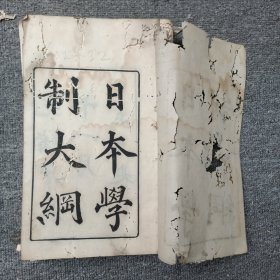 日本學
制大綱